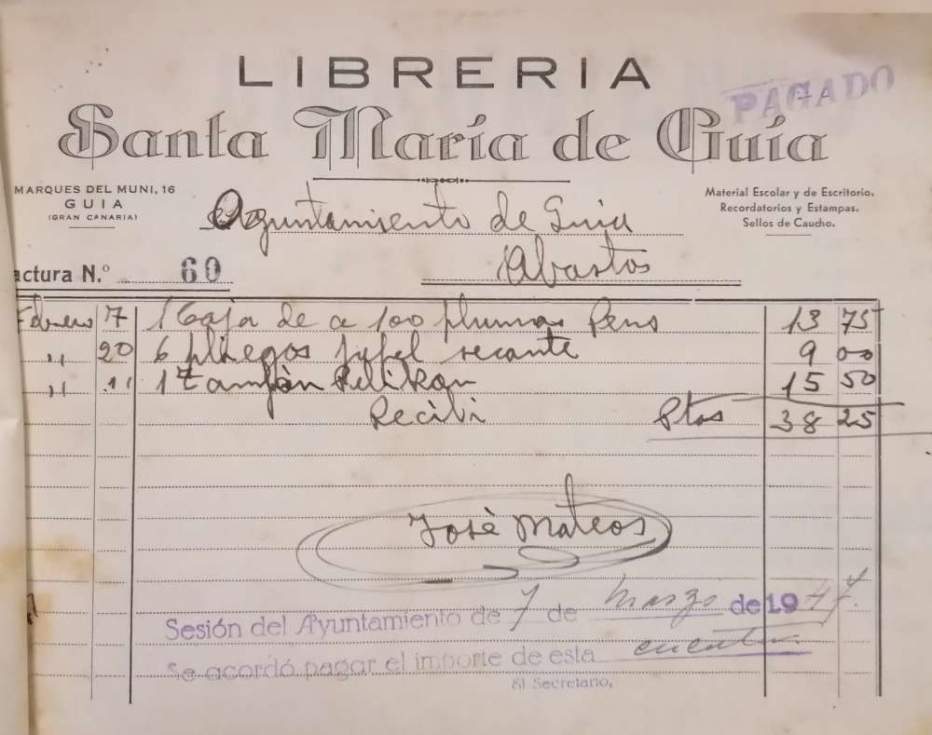 LIBRERIA
PAGADO
Santa María de Guía
MARQUES DEL MUNI, 16
GUIA
(GRAN CANARIA)
Material Escolar y de Escritorio.
Recordatorios y Estampas.
Sellos de Caucho.
Ayuntamiento de Guia
Abastos
actura N.º 60
Febrero 7 1 Caja de a 100 plumas Pens 13 75
" 20 6 pliegos papel secante 9 00
" " 1 tampòn Pelikan 15 50
Recibi Ptas 38 25
Josè Mateos
Sesión del Ayuntamiento de 7 de marzo de 1947.
Se acordó pagar el importe de esta cuenta.
El Secretario,